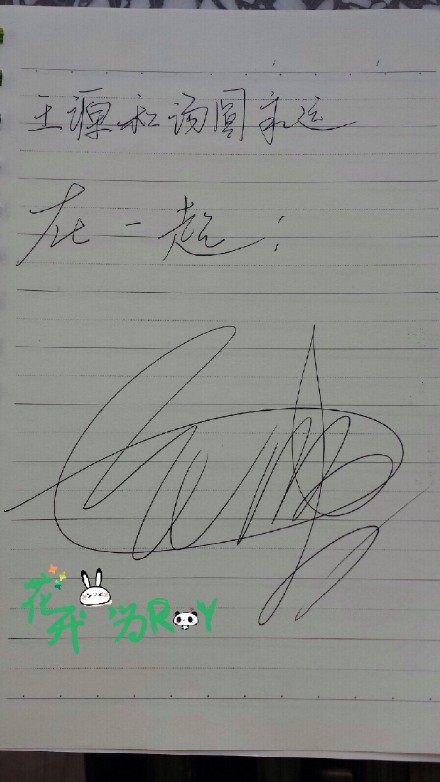 王源和汤圆永远
在一起！
花开为ROY